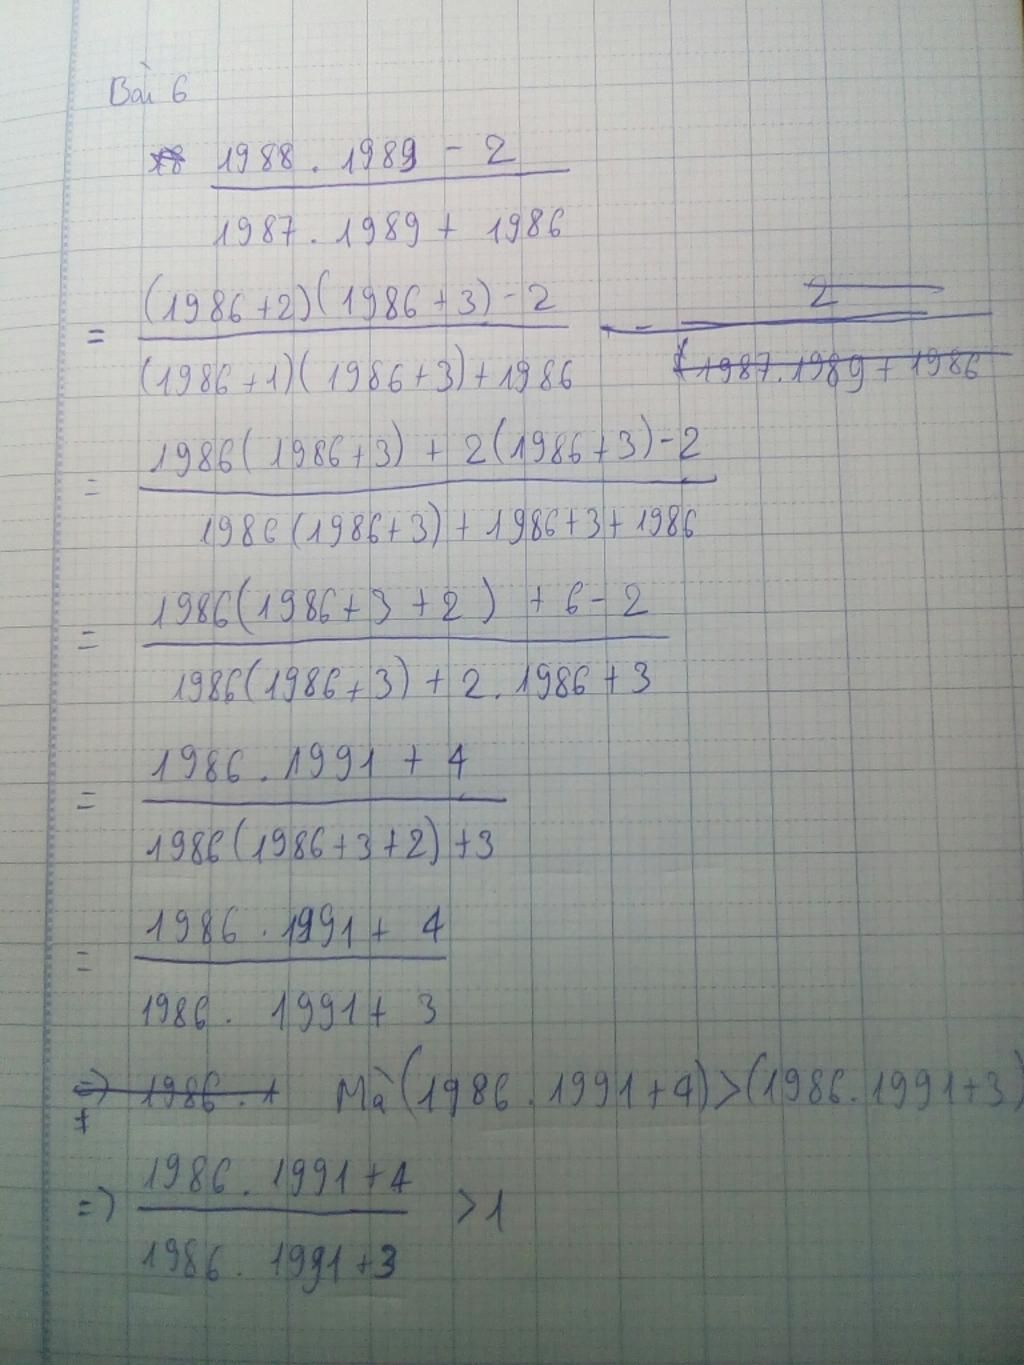 Bài 6
1988 . 1989 - 2
1987 . 1989 + 1986
(1986 + 2)(1986 + 3) - 2
=
(1986 + 1)(1986 + 3) + 1986
- 2
(1987 . 1989 + 1986
1986(1986 + 3) + 2(1986 + 3) - 2
=
1986(1986 + 3) + 1986 + 3 + 1986
1986(1986 + 3 + 2) + 6 - 2
=
1986(1986 + 3) + 2 . 1986 + 3
1986 . 1991 + 4
=
1986(1986 + 3 + 2) + 3
1986 . 1991 + 4
=
1986 . 1991 + 3
=> 1986 . 1 Mà (1986 . 1991 + 4) > (1986 . 1991 + 3)
1986 . 1991 + 4
=> > 1
1986 . 1991 + 3